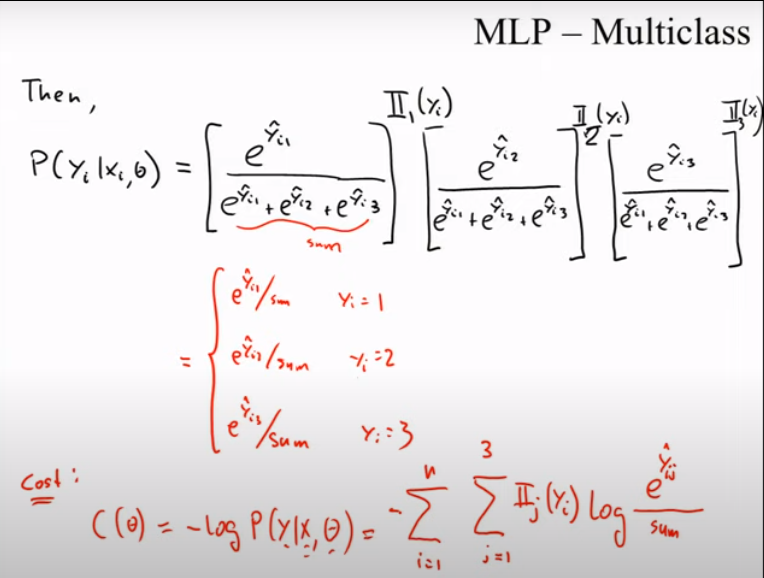 MLP – Multiclass
Then,
P(yᵢ|xᵢ,θ) = [e^ŷᵢ₁ / (e^ŷᵢ₁ + e^ŷᵢ₂ + e^ŷᵢ₃)]^𝕀₁(yᵢ) [e^ŷᵢ₂ / (e^ŷᵢ₁ + e^ŷᵢ₂ + e^ŷᵢ₃)]^𝕀₂(yᵢ) [e^ŷᵢ₃ / (e^ŷᵢ₁ + e^ŷᵢ₂ + e^ŷᵢ₃)]^𝕀₃(yᵢ)
sum
= { e^ŷᵢ₁/sum yᵢ = 1
e^ŷᵢ₂/sum yᵢ = 2
e^ŷᵢ₃/sum yᵢ = 3
Cost:
C(θ) = -log P(y|x,θ) = -∑ᵢ₌₁ⁿ ∑ⱼ₌₁³ 𝕀ⱼ(yᵢ) log e^ŷᵢⱼ / sum